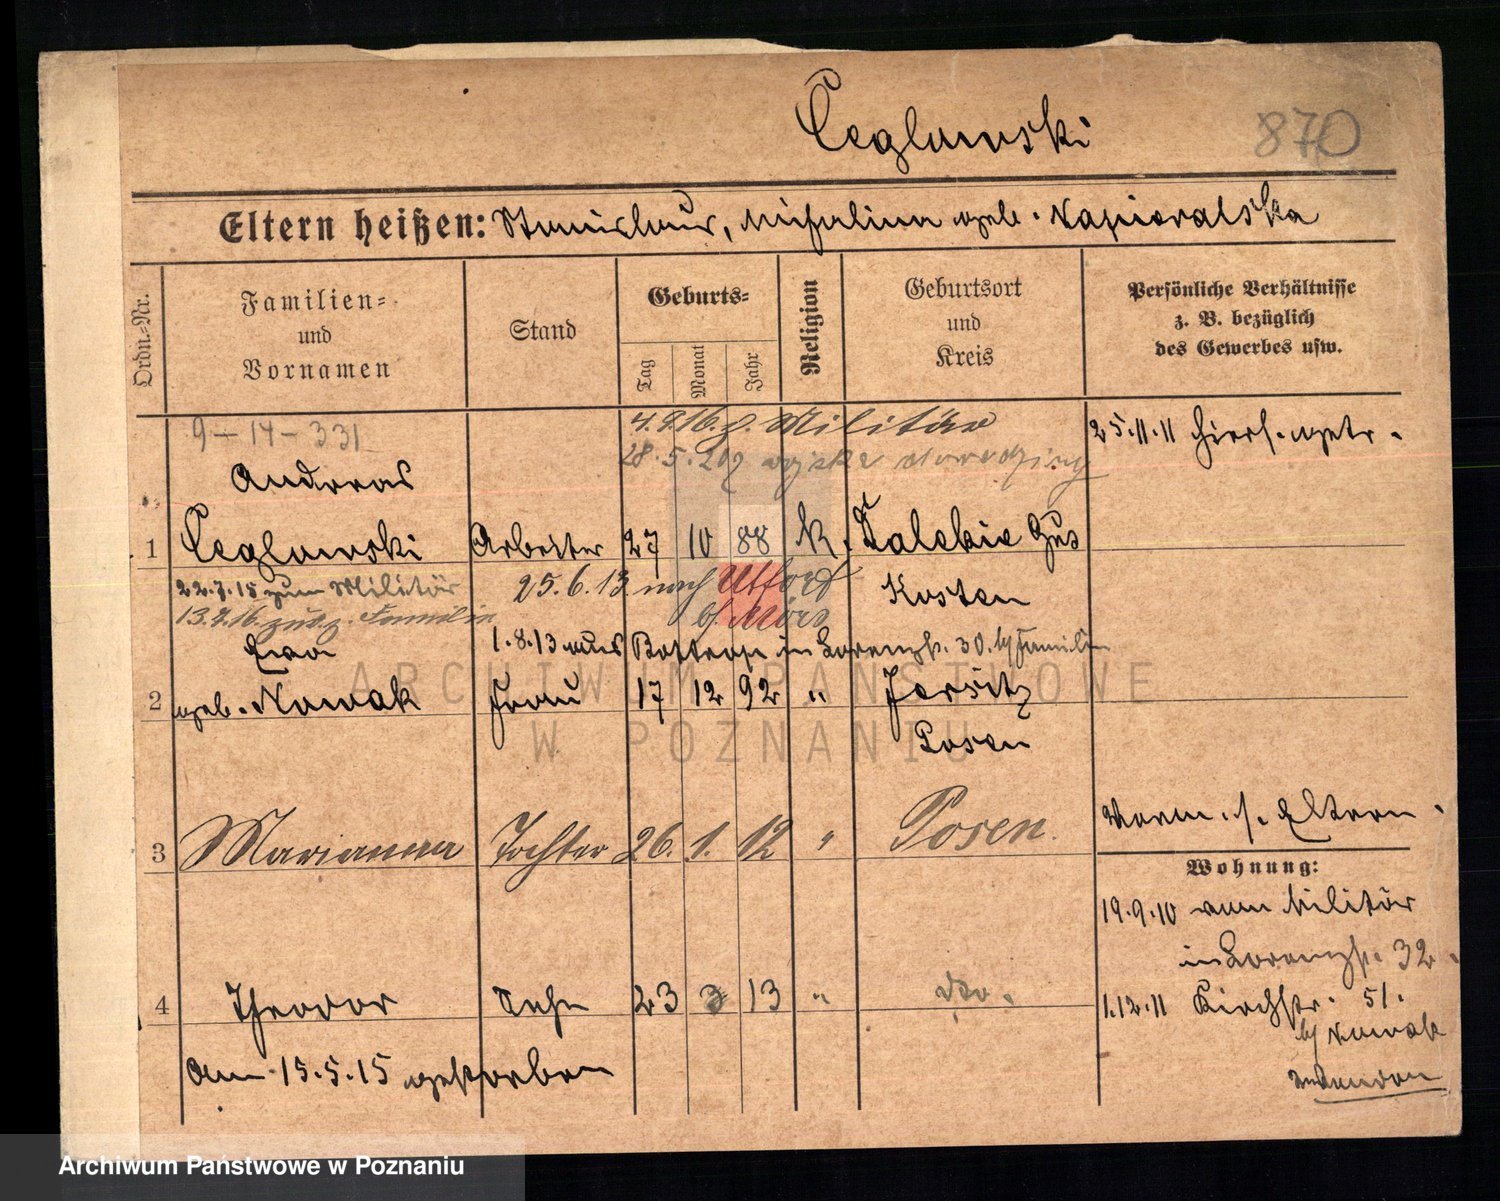 Ceglowski 870
Eltern heißen: Stanislaus, Michalina geb. Napieralska
Ordn.-Nr.
Familien-
und
Vornamen
Stand
Geburts-
Tag
Monat
Jahr
Religion
Geburtsort
und
Kreis
Persönliche Verhältnisse
z. B. bezüglich
des Gewerbes usw.
9-14-331
4.9.16. z. Militär
28.5.
25.11.11 hiers. getr.
Andreas
1 Ceglowski Arbeiter 27 10 88 k. Gut
Kosten
22.7.15 zum Militär
13.7.16. zur. z. Familie
25.6.13 nach Utfort
b/ Mörs
1.8.13 aus Bottrop in Lorenzstr. 30. b/ Familie
Ewa
2 geb. Nowak Frau 17 12 92 " Jersitz
Posen
3 Marianna Tochter 26. 1. 12 " Posen.
Verm. s. Eltern.
Wohnung:
19.9.10 vom Militär
in Lorenzstr. 32.
4 Theodor Sohn 23 3 13 " do.
1.12.11 Kirchstr. 51.
b/ Nowak
am 15.5.15 gestorben
ARCHIWUM PAŃSTWOWE
W POZNANIU
Archiwum Państwowe w Poznaniu